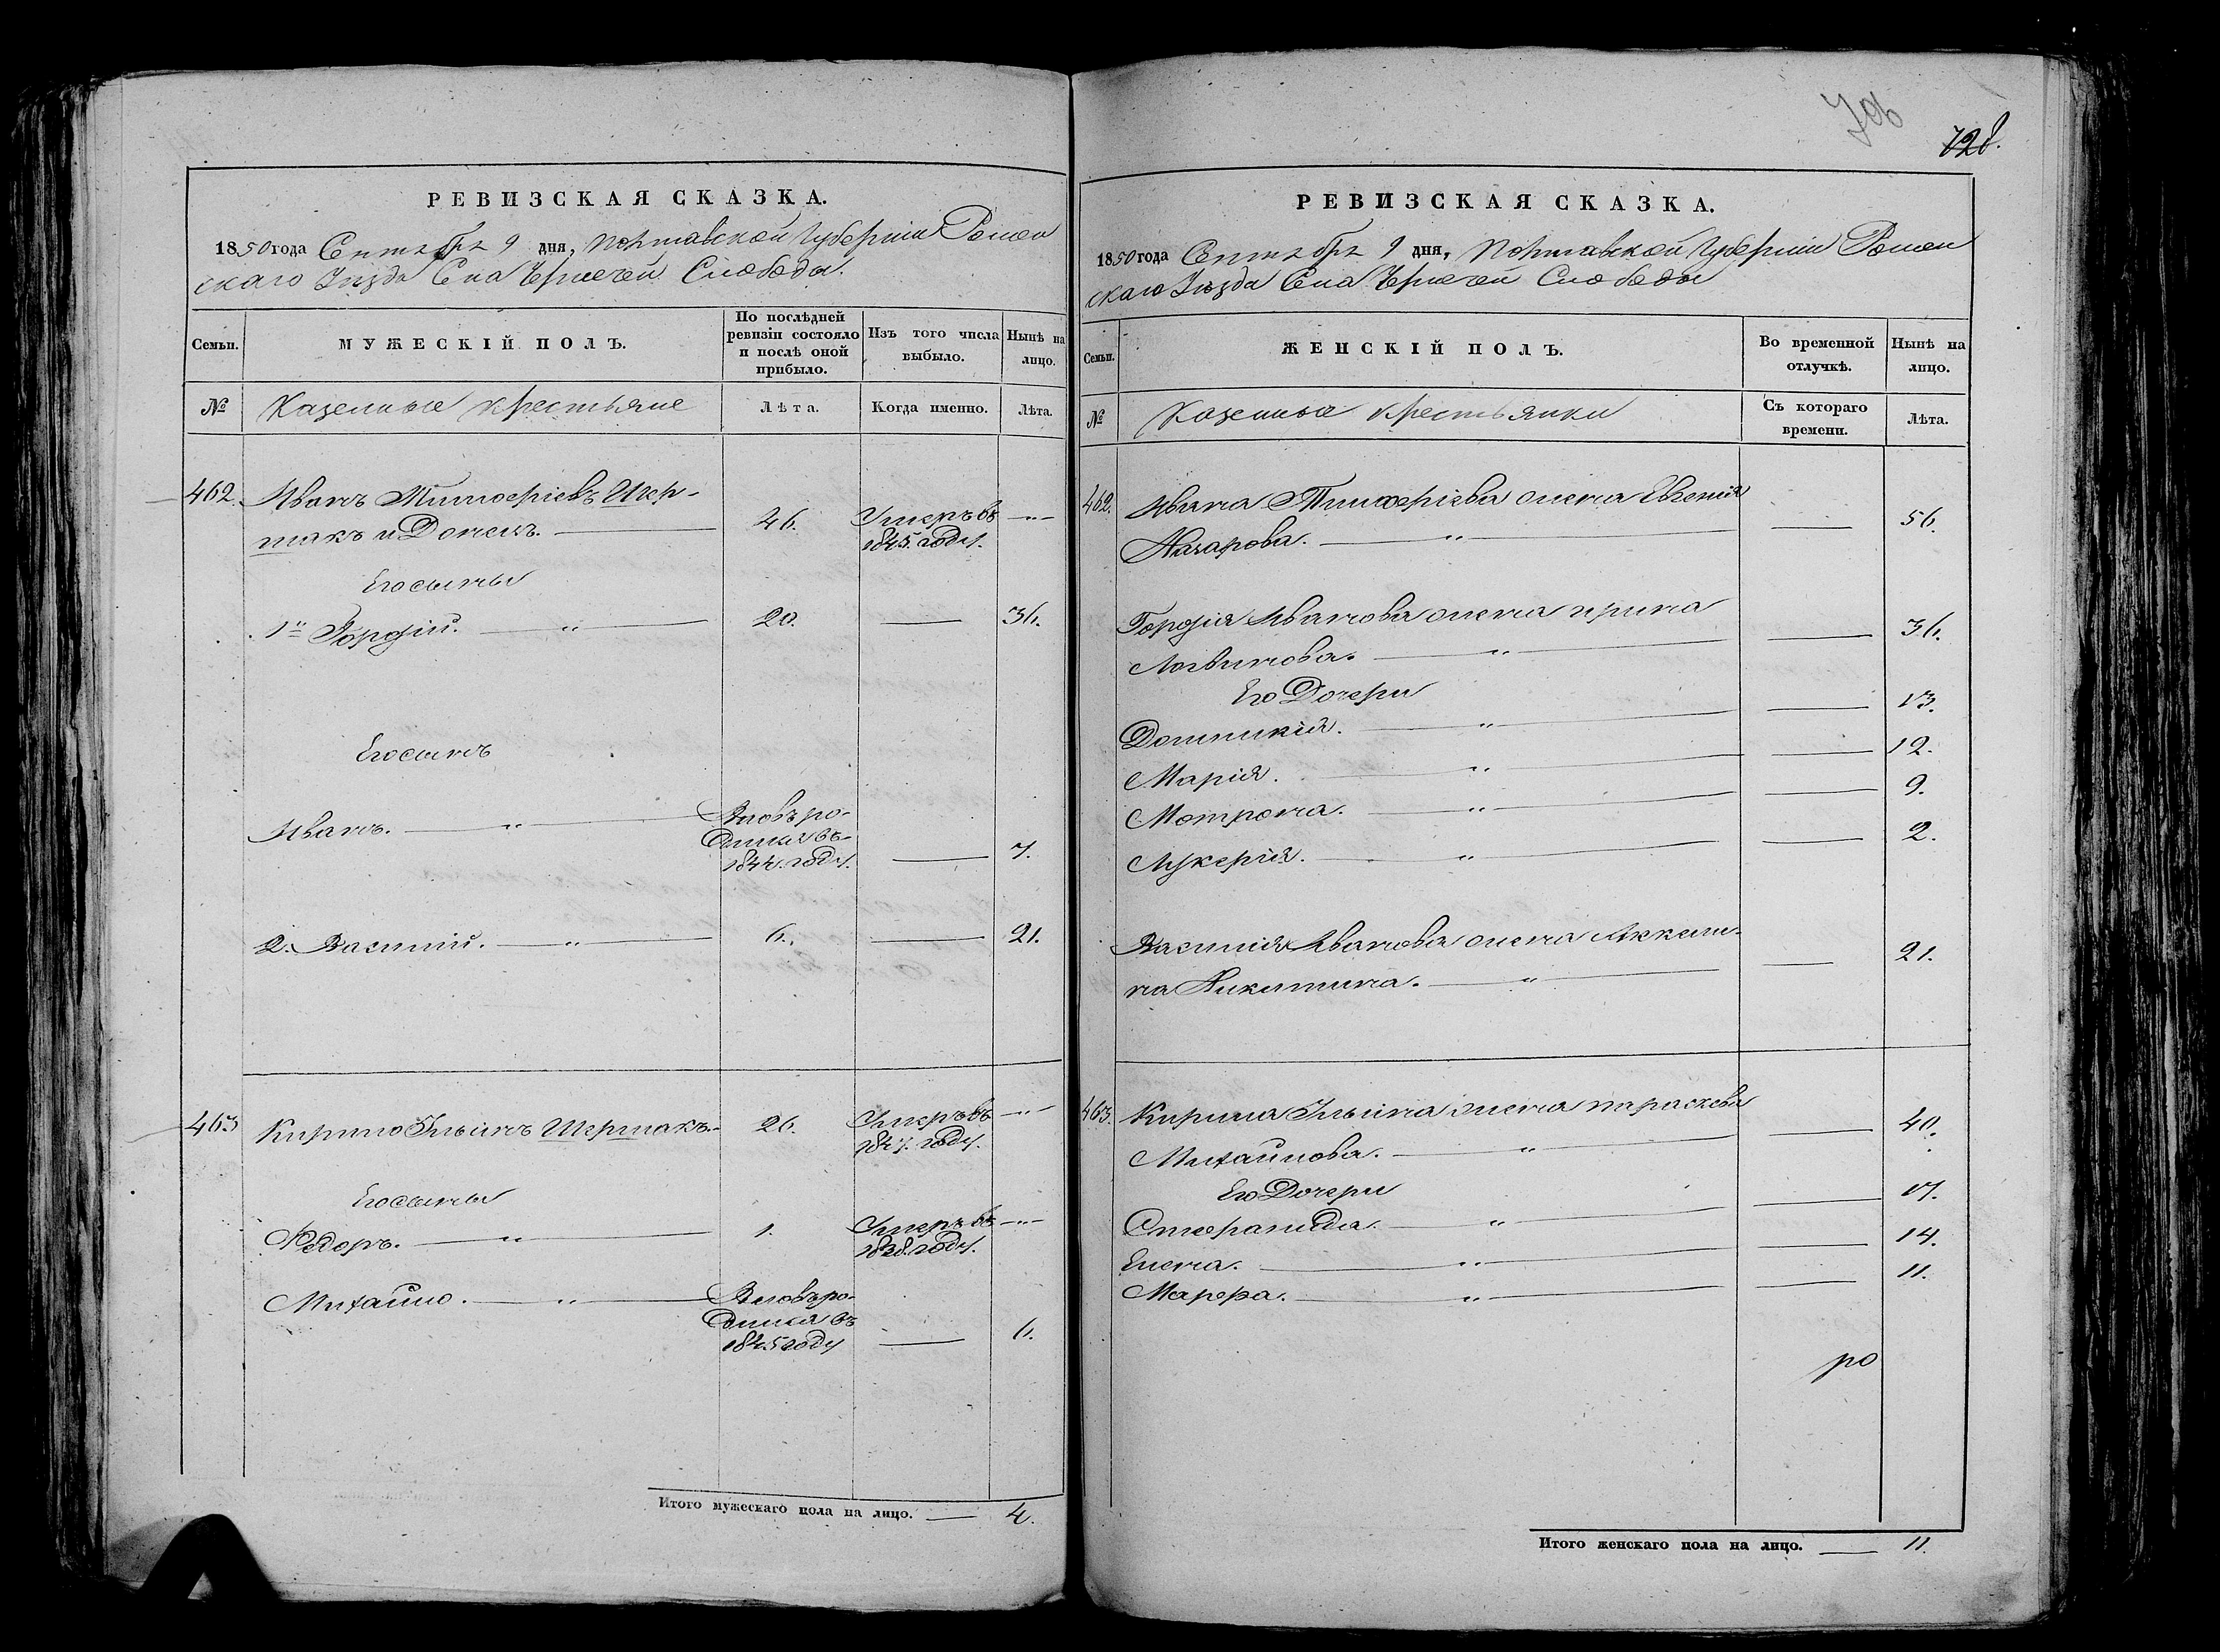 РЕВИЗСКАЯ СКАЗКА.
1850 года Сентября 9 дня, Полтавской Губерніи Ромен
скаго Уѣзда Села Чернечей Слободы.
Семьи.
МУЖЕСКІЙ ПОЛЪ.
По послѣдней ревизіи состояло и послѣ оной прибыло.
Изъ того числа выбыло.
Нынѣ на лицо.
№
Казенные крестьяне
Лѣта.
Когда именно.
Лѣта.
462. Иванъ Тимоѳеріевъ Шер-
шакъ и Донецъ. 46. Умеръ въ 1845. году. -"-
Его сыны
1й Гордій. " 20. 36.
Его сынъ
Иванъ. " Вновь ро-
дился въ
1844. году. 7.
2. Василій. " 6. 21.
463 Кирило Ильинъ Шершакъ. 26. Умеръ въ 1847. году. -"-
Его сыны
Ѳедоръ. " 1. Умеръ въ 1838. году. -"-
Михайло. " Вновь ро-
дился въ
1845 году 6.
Итого мужескаго пола на лицо. 4.
728.
РЕВИЗСКАЯ СКАЗКА.
1850 года Сентября 9 дня, Полтавской Губерніи Ромен
скаго Уѣзда Села Чернечей Слободы
Семьи.
ЖЕНСКІЙ ПОЛЪ.
Во временной отлучкѣ.
Нынѣ на лицо.
№
Казенные крестьянки
Съ котораго времени.
Лѣта.
462. Ивана Тимоѳеріева жена Евгенія
Назарова. " 56.
Гордія Иванова жена Ирина
Логвинова. " 36.
Его Дочери
Домникія. " 13.
Марія. " 12.
Мотрона. " 9.
Лукерія. " 2.
Василія Иванова жена Аккели-
на Никитина. " 21.
463. Кирила Ильина жена Параскева
Михайлова. " 40.
Его Дочери
Степанида. " 17.
Елена. " 14.
Марфа. " 11.
Итого женскаго пола на лицо. 11.